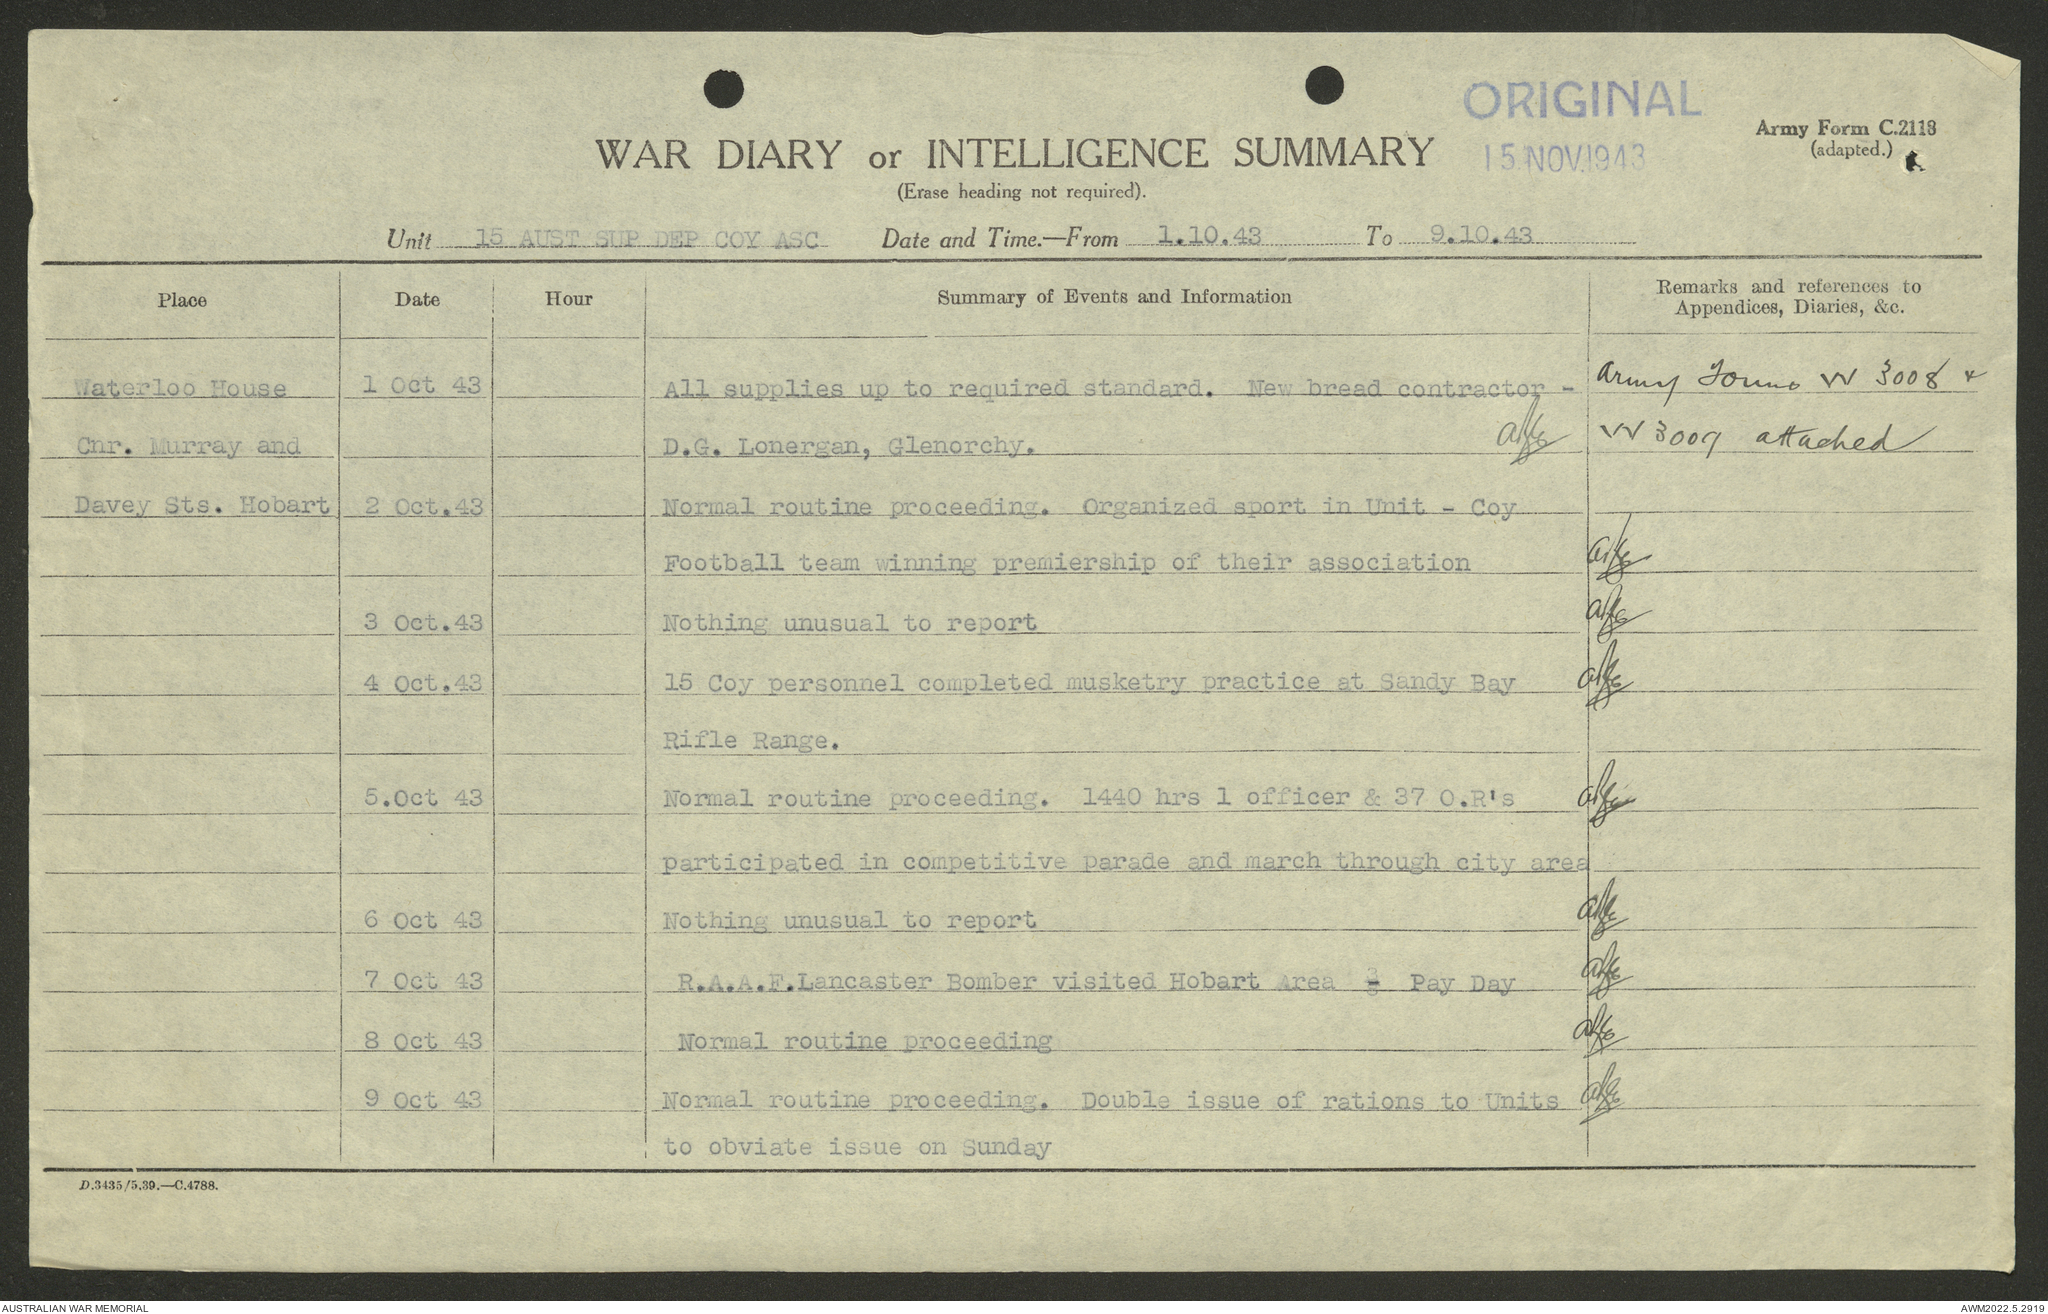 ORIGINAL
15 NOV 1943
Army Form C.2118
(adapted.)
WAR DIARY or INTELLIGENCE SUMMARY
(Erase heading not required).
Unit 15 AUST SUP DEP COY ASC Date and Time.—From 1.10.43 To 9.10.43
Place Date Hour Summary of Events and Information Remarks and references to
Appendices, Diaries, &c.
Waterloo House 1 Oct 43 All supplies up to required standard. New bread contractor - Army Forms W 3008 &
Cnr. Murray and D.G. Lonergan, Glenorchy. W 3009 attached
Davey Sts. Hobart 2 Oct.43 Normal routine proceeding. Organized sport in Unit - Coy
Football team winning premiership of their association
3 Oct.43 Nothing unusual to report
4 Oct.43 15 Coy personnel completed musketry practice at Sandy Bay
Rifle Range.
5.Oct 43 Normal routine proceeding. 1440 hrs 1 officer & 37 O.R's
participated in competitive parade and march through city area
6 Oct 43 Nothing unusual to report
7 Oct 43 R.A.A.F.Lancaster Bomber visited Hobart Area Pay Day
8 Oct 43 Normal routine proceeding
9 Oct 43 Normal routine proceeding. Double issue of rations to Units
to obviate issue on Sunday
D.3435/5.39.—C.4788.
AUSTRALIAN WAR MEMORIAL
AWM2022.5.2919